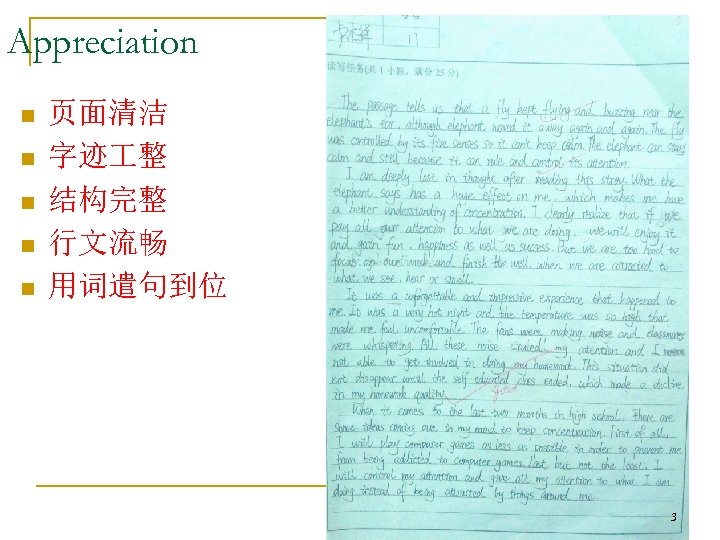 Appreciation
页面清洁
字迹工整
结构完整
行文流畅
用词遣句到位
17
读写任务(共1小题，满分25分)
The passage tells us that a fly kept flying and buzzing near the
elephant's ear, although elephant moved it away again and again. The fly
was controlled by its five senses so it can't keep calm. The elephant can stay
calm and still because it can rule and control its attention.
I am deeply lost in thought after reading this story. What the
elephant says has a huge effect on me, which makes me have
a better understanding of concentration. I clearly realize that if we
pay all our attention to what we are doing, we will enjoy it
and gain fun, happiness as well as success. But we are too hard to
focus on our work and finish the well when we are attracted to
what we see, hear or smell.
It was a unforgettable and impressive experience that happened to
me. It was a very hot night and the temperature was so high that
made me feel uncomfortable. The fans were making noise and classmates
were whispering. All these noise my attention and I were
not able to get involved in doing my homework. This situation did
not disappear until the self educated class ended, which made a decline
in my homework quality.
good
When it comes to the last two months in high school, there are
some ideas coming out in my mind to keep concentration. First of all,
I will play computer games as less as possible in order to prevent me
from being addicted to computer games. Last but not the least, I
will control my attention and give all my attention to what I am
doing instead of being attracted by things around me.
3